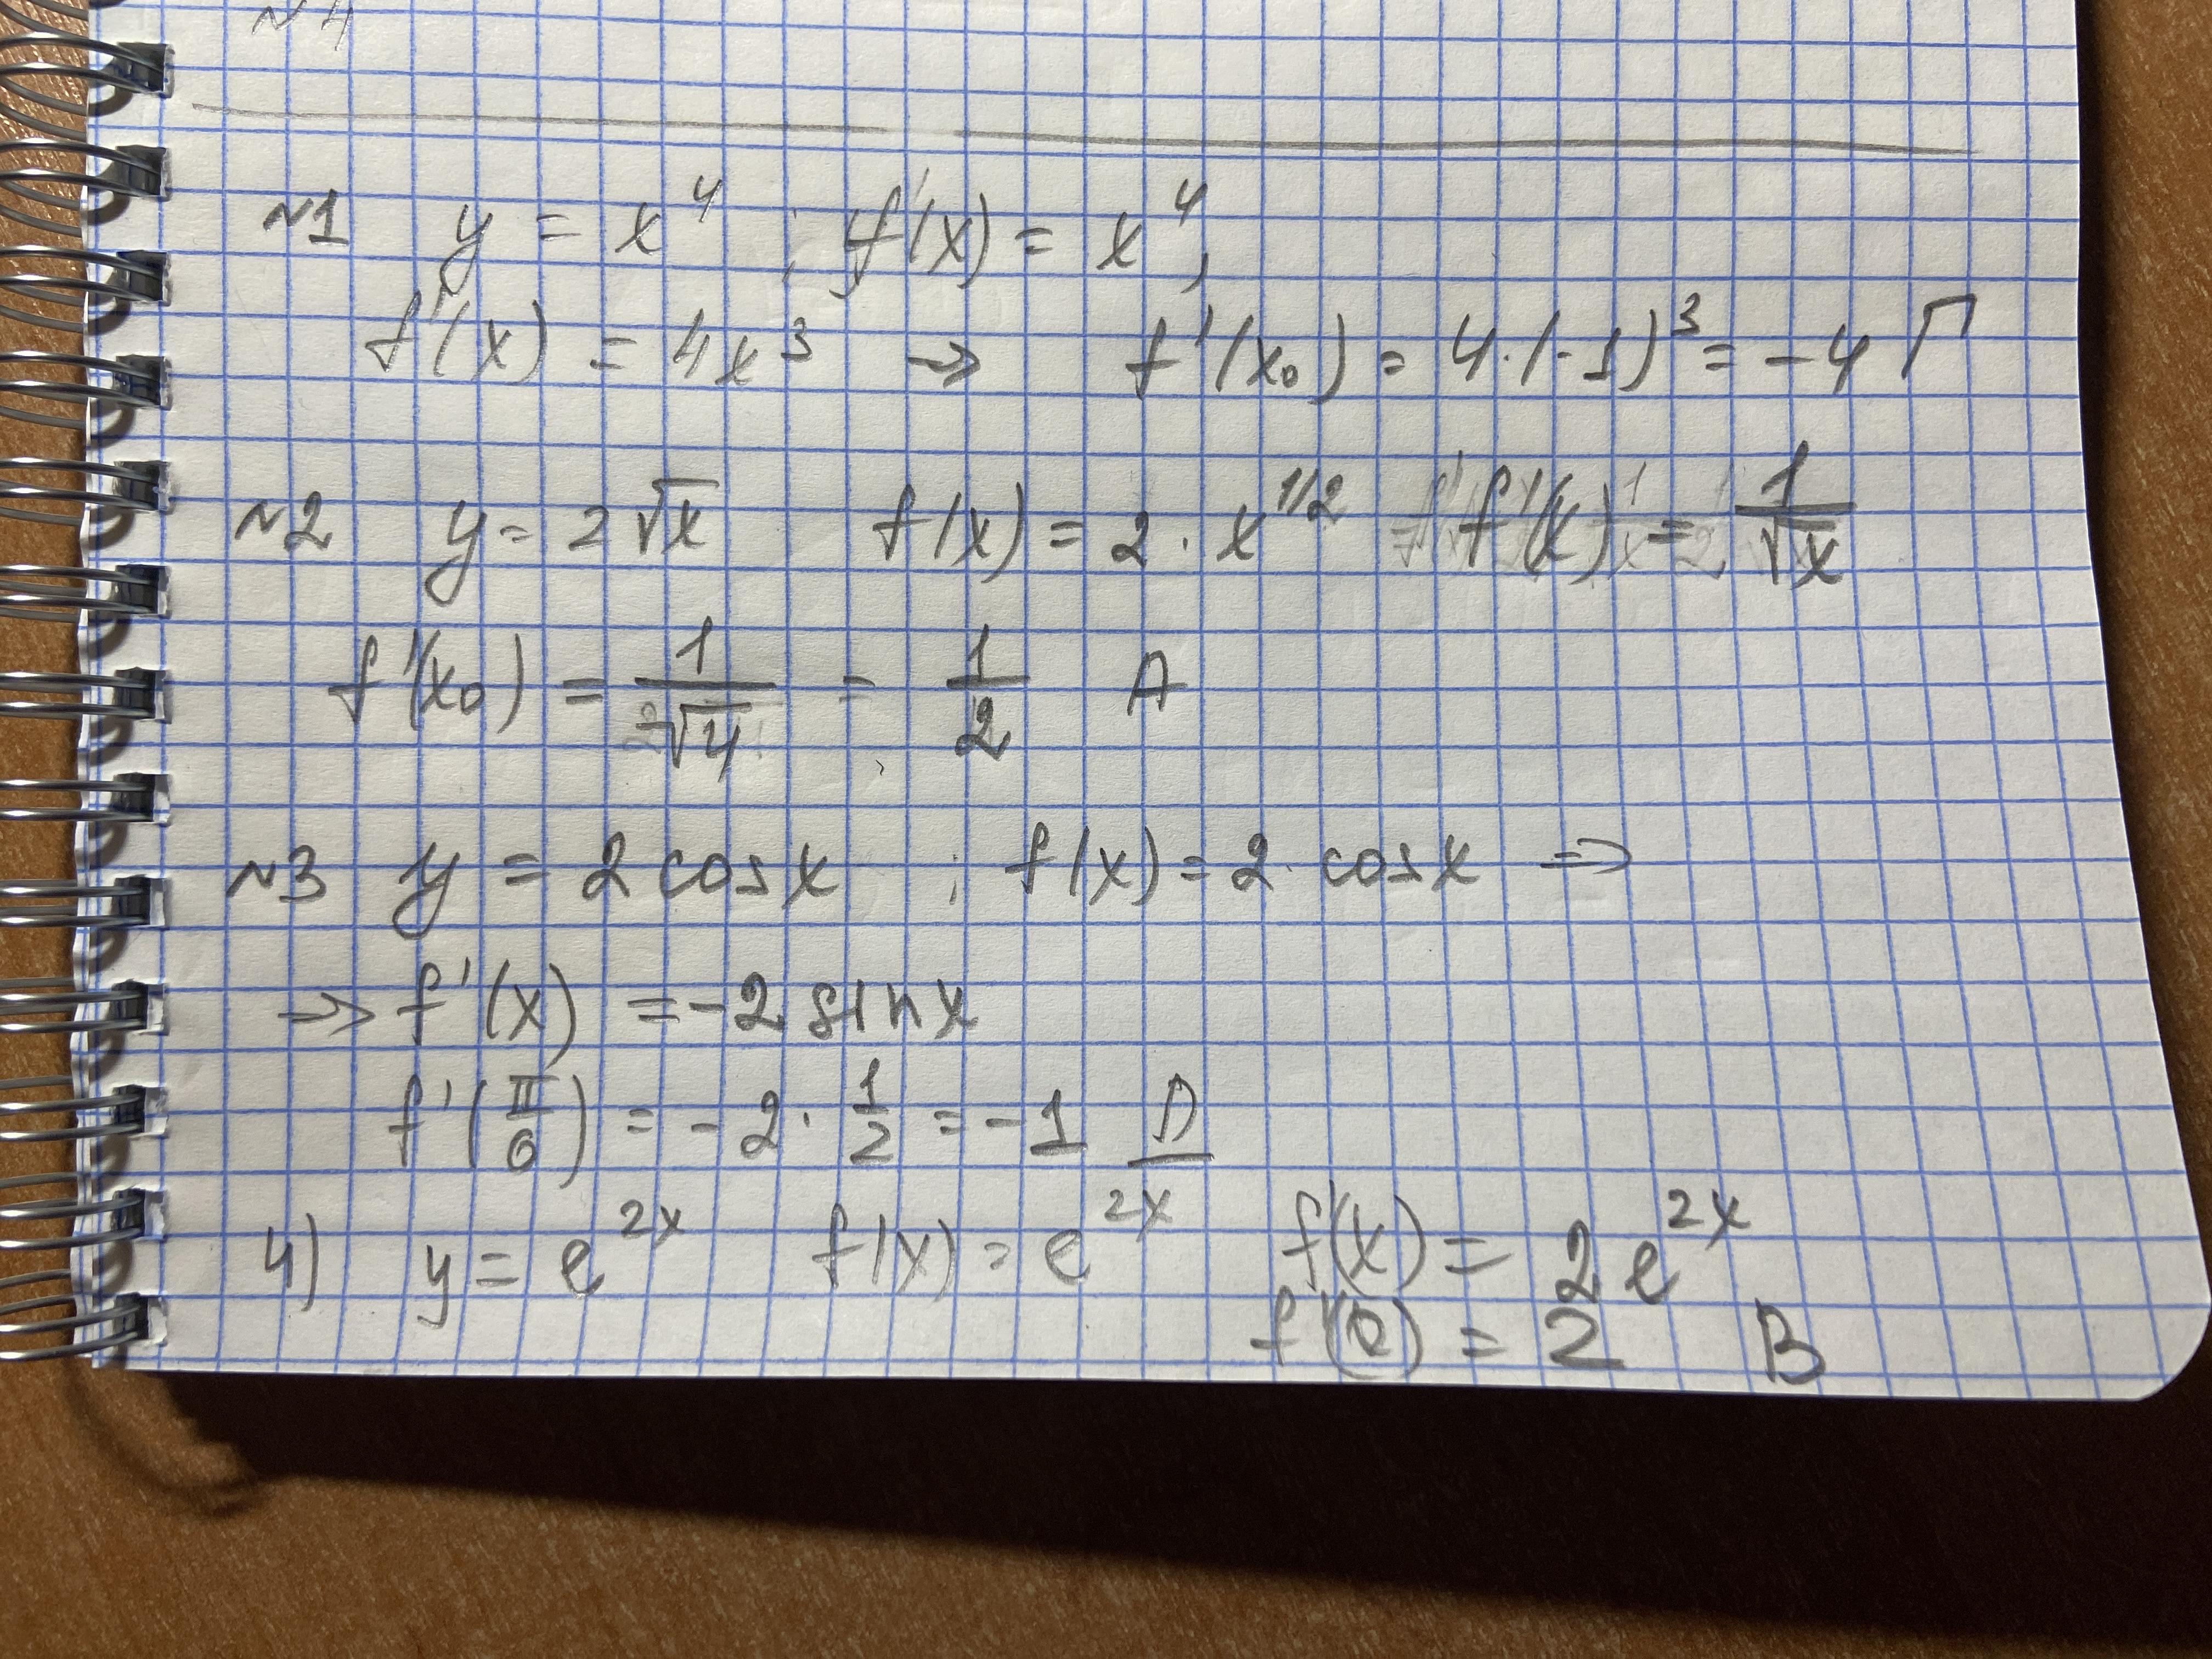 №4
№1 y = x⁴ ; f'(x) = x⁴,
f'(x) = 4x³ → f'(x₀) = 4·(-1)³ = -4 Г
№2 y = 2√x f(x) = 2 · x^1/2 f'(x) = 1/√x
f'(x₀) = 1/√4 = 1/2 А
№3 y = 2 cos x ; f(x) = 2·cos x ⇒
⇒ f'(x) = -2 sin x
f'(π/6) = -2 · 1/2 = -1 Д
4) y = e^2x f(x) = e^2x f'(x) = 2e^2x
f'(0) = 2 В